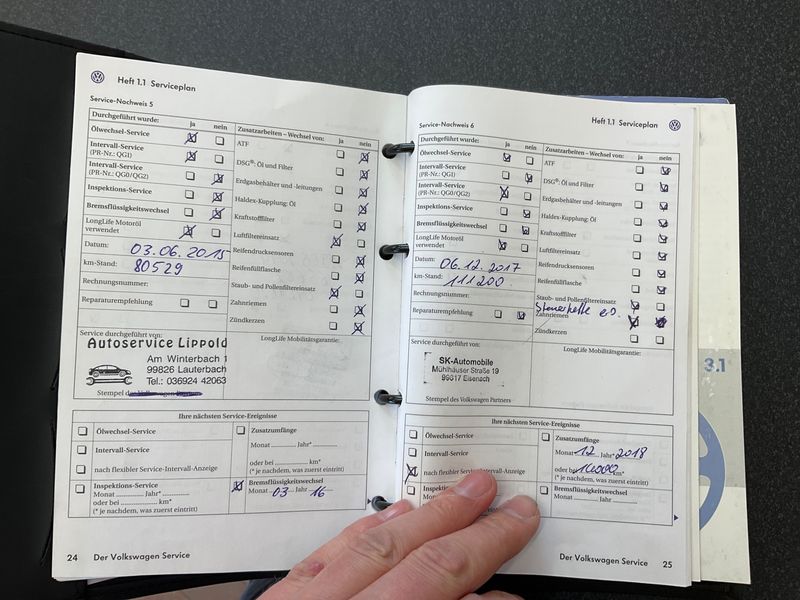 Heft 1.1 Serviceplan
Service-Nachweis 5
Durchgeführt wurde: ja nein
Ölwechsel-Service
Intervall-Service
(PR-Nr.: QG1)
Intervall-Service
(PR-Nr.: QG0/QG2)
Inspektions-Service
Bremsflüssigkeitswechsel
LongLife Motoröl
verwendet
Datum: 03.06.2015
km-Stand: 80529
Rechnungsnummer:
Reparaturempfehlung
Zusatzarbeiten – Wechsel von: ja nein
ATF
DSG®: Öl und Filter
Erdgasbehälter und -leitungen
Haldex-Kupplung: Öl
Kraftstofffilter
Luftfiltereinsatz
Reifendrucksensoren
Reifenfüllflasche
Staub- und Pollenfiltereinsatz
Zahnriemen
Zündkerzen
Service durchgeführt von:
Autoservice Lippold
Am Winterbach 1
99826 Lauterbach
Tel.: 036924 42063
Stempel des
LongLife Mobilitätsgarantie:
Ihre nächsten Service-Ereignisse
Ölwechsel-Service
Intervall-Service
nach flexibler Service-Intervall-Anzeige
Inspektions-Service
Monat Jahr*
oder bei km*
(* je nachdem, was zuerst eintritt)
Zusatzumfänge
Monat Jahr*
oder bei km*
(* je nachdem, was zuerst eintritt)
Bremsflüssigkeitswechsel
Monat 03 Jahr 16
24 Der Volkswagen Service
Heft 1.1 Serviceplan
Service-Nachweis 6
Durchgeführt wurde: ja nein
Ölwechsel-Service
Intervall-Service
(PR-Nr.: QG1)
Intervall-Service
(PR-Nr.: QG0/QG2)
Inspektions-Service
Bremsflüssigkeitswechsel
LongLife Motoröl
verwendet
Datum: 06.12.2017
km-Stand: 111200
Rechnungsnummer:
Reparaturempfehlung
Zusatzarbeiten – Wechsel von: ja nein
ATF
DSG®: Öl und Filter
Erdgasbehälter und -leitungen
Haldex-Kupplung: Öl
Kraftstofffilter
Luftfiltereinsatz
Reifendrucksensoren
Reifenfüllflasche
Staub- und Pollenfiltereinsatz
Steuerkette
Zahnriemen
Zündkerzen
Service durchgeführt von:
SK-Automobile
Mühlhäuser Straße 19
99817 Eisenach
Stempel des Volkswagen Partners
LongLife Mobilitätsgarantie:
Ihre nächsten Service-Ereignisse
Ölwechsel-Service
Intervall-Service
nach flexibler Service-Intervall-Anzeige
Zusatzumfänge
Monat 12 Jahr* 2018
km*
(* je nachdem, was zuerst eintritt)
Bremsflüssigkeitswechsel
Monat Jahr
Der Volkswagen Service 25
3.1